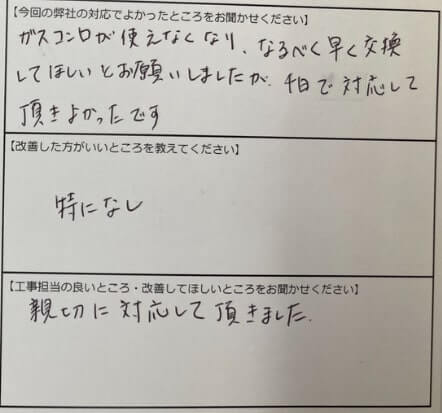 【今回の弊社の対応でよかったところをお聞かせください】
ガスコンロが使えなくなり、なるべく早く交換
してほしいとお願いしましたが、4日で対応して
頂きよかったです
【改善した方がいいところを教えてください】
特になし
【工事担当の良いところ・改善してほしいところをお聞かせください】
親切に対応して頂きました.